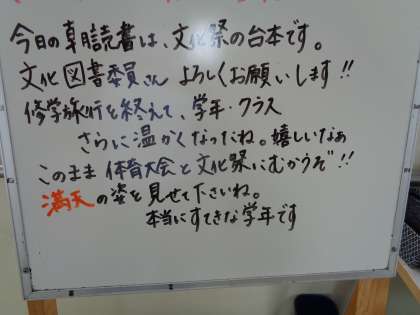 今日の朝読書は、文化祭の台本です。
文化図書委員さん よろしくお願いします!!
修学旅行を終えて、学年・クラス
さらに温かくなったね。嬉しいなぁ
このまま体育大会と文化祭にむかうぞ!!
満天の姿を見せて下さいね。
本当にすてきな学年です